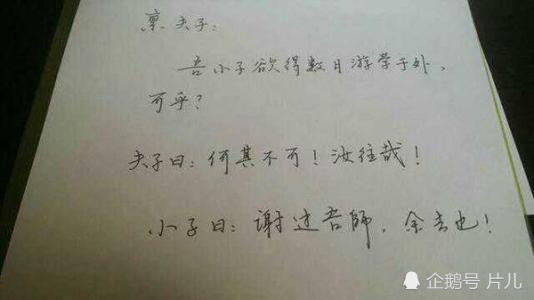 禀夫子：
吾小子欲得数日游学于外，
可乎？
夫子曰：何其不可！汝往哉！
小子曰：谢过吾師，余去也！
企鹅号 片儿